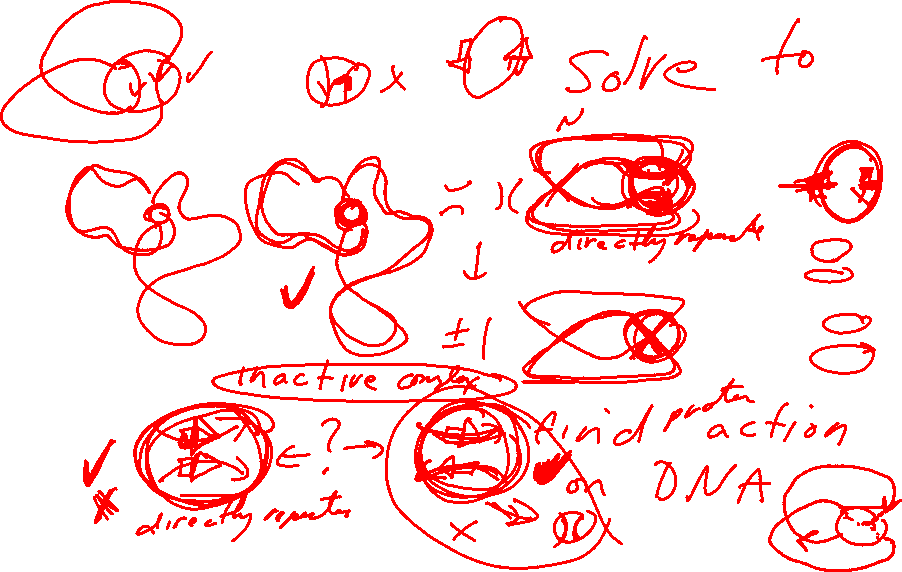 Solve to
directly repeats
± 1
inactive complex
← ? →
find protein action
on DNA
directly repeats
x